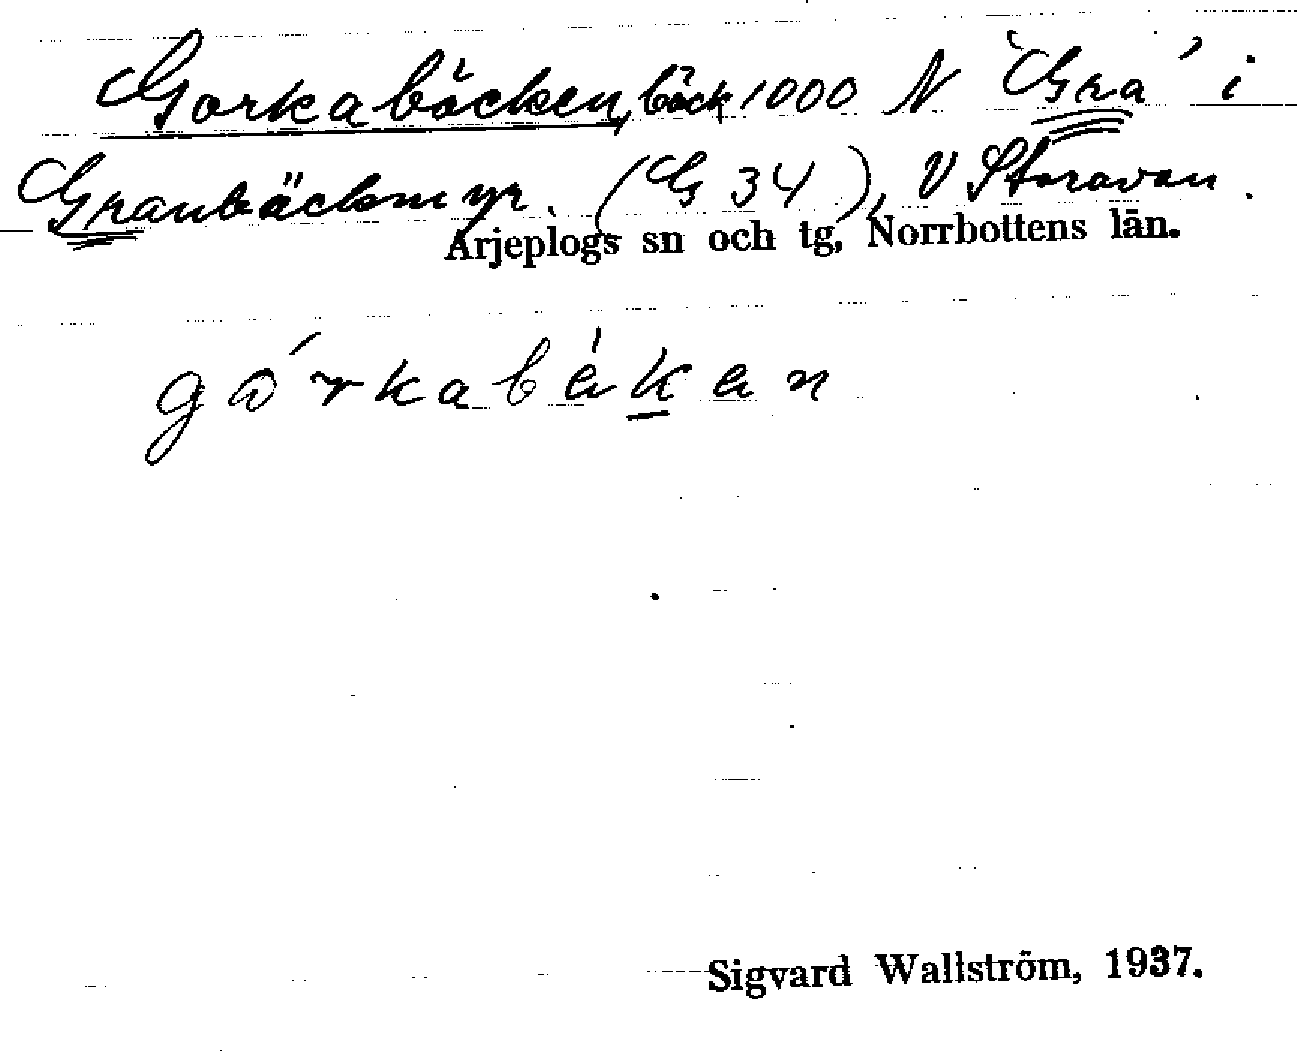 Gorkabäcken, bäck 1000 N "Gra" i
Granbäckmyr. (G 34), V Storavan.
Arjeplogs sn och tg, Norrbottens län.
górkabäkan
Sigvard Wallström, 1937.